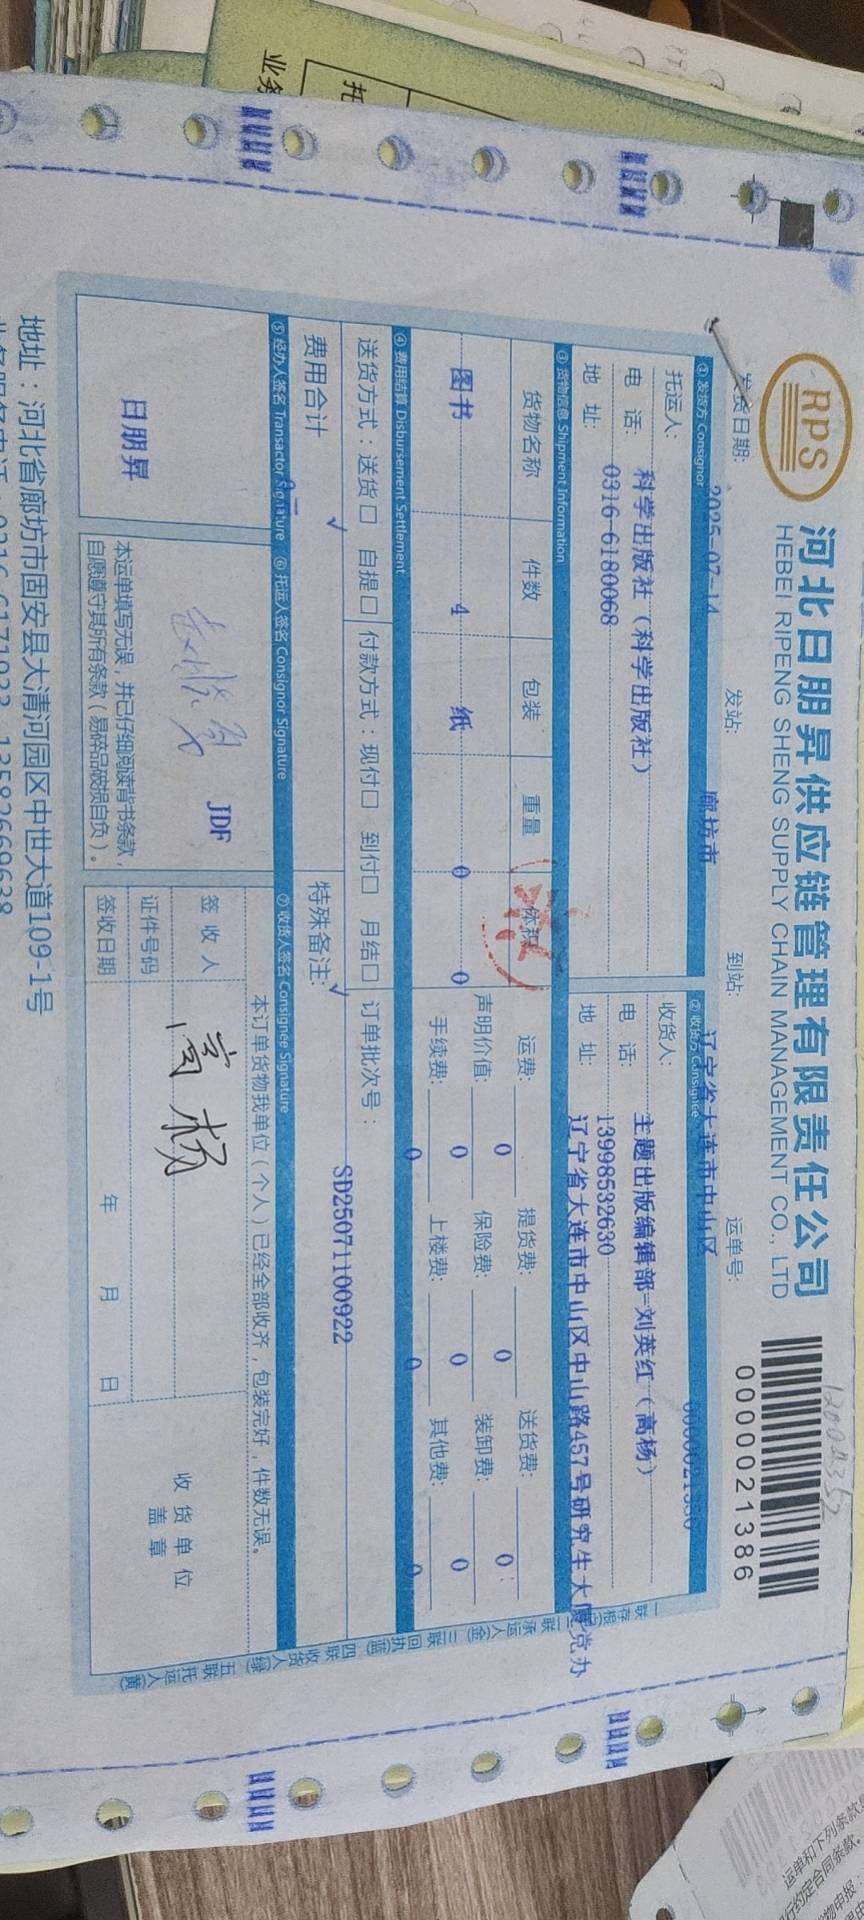 业务
托
RPS
河北日朋昇供应链管理有限责任公司
HEBEI RIPENG SHENG SUPPLY CHAIN MANAGEMENT CO., LTD
12002352
0000021386
发货日期: 2025-07-14 发站: 廊坊市 到站: 辽宁省大连市中山区 运单号: 0000021386
① 发货方 Consignor
托运人: 科学出版社（科学出版社）
电 话: 0316-6180068
地 址:
② 收货方 Consignee
收货人: 主题出版编辑部-刘英红（高杨）
电 话: 13998532630
地 址: 辽宁省大连市中山区中山路457号研究生大厦党办
③ 货物信息 Shipment Information
货物名称 件数 包装 重量 体积
图书 4 纸 0 0
运费: 0 提货费: 0 送货费: 0
声明价值: 0 保险费: 0 装卸费: 0
手续费: 0 上楼费: 0 其他费: 0
④ 费用结算 Disbursement Settlement
送货方式：送货□ 自提□ 付款方式：现付□ 到付□ 月结□ 订单批次号：
√ √ SD25071100922
费用合计 特殊备注:
⑤ 经办人签名 Transactor Signature ⑥ 托运人签名 Consignor Signature ⑦ 收货人签名 Consignee Signature
日朋昇
JDF
本运单填写无误，并已仔细阅读背书条款，
自愿遵守其所有条款（易碎品破损自负）。
本订单货物我单位（个人）已经全部收齐，包装完好，件数无误。
签 收 人 高杨
证件号码
签收日期 年 月 日
收 货 单 位
盖 章
一联存根 二联承运人(金) 三联回执(蓝) 四联收货人(绿) 五联托运人(黄)
地址：河北省廊坊市固安县大清河园区中世大道109-1号
运单和下列条款
约定合同条款。